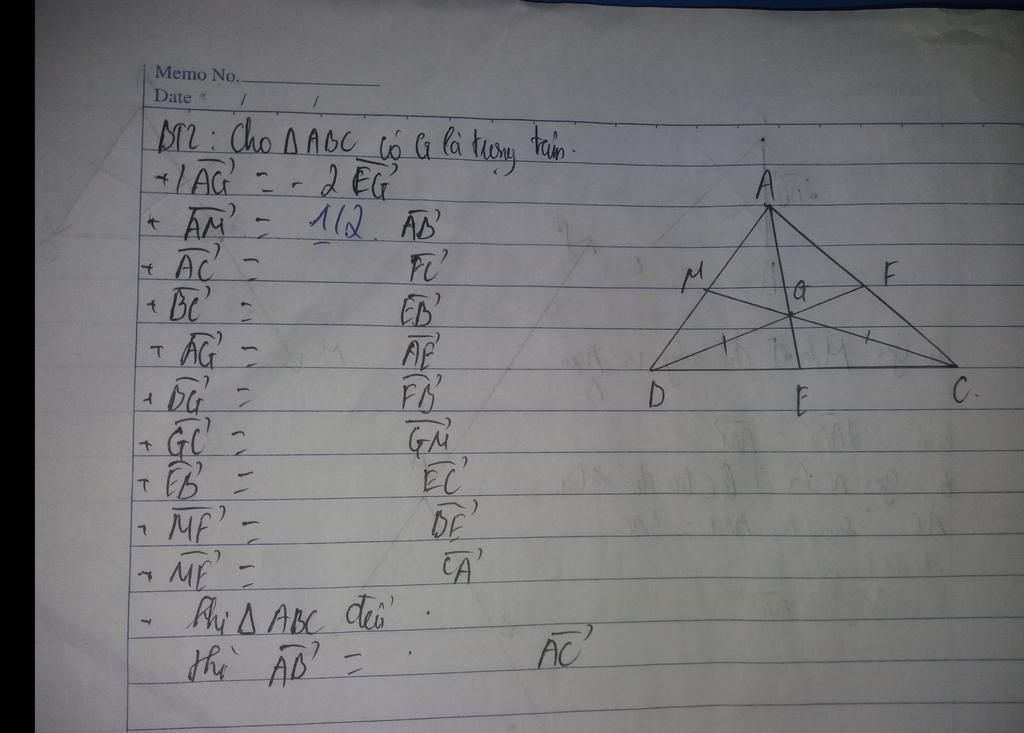 Memo No.
Date / /
BT2: Cho ΔABC có G là trọng tâm.
+/ AG = - 2 EG
+ AM = 1/2 AB
+ AC = FC
+ BC = EB
+ AG = AE
+ BG = FB
+ GC = GM
+ EB = EC
+ MF = BE
+ ME = CA
- Khi Δ ABC đều
thì AB = AC
A
M F
G
B E C.